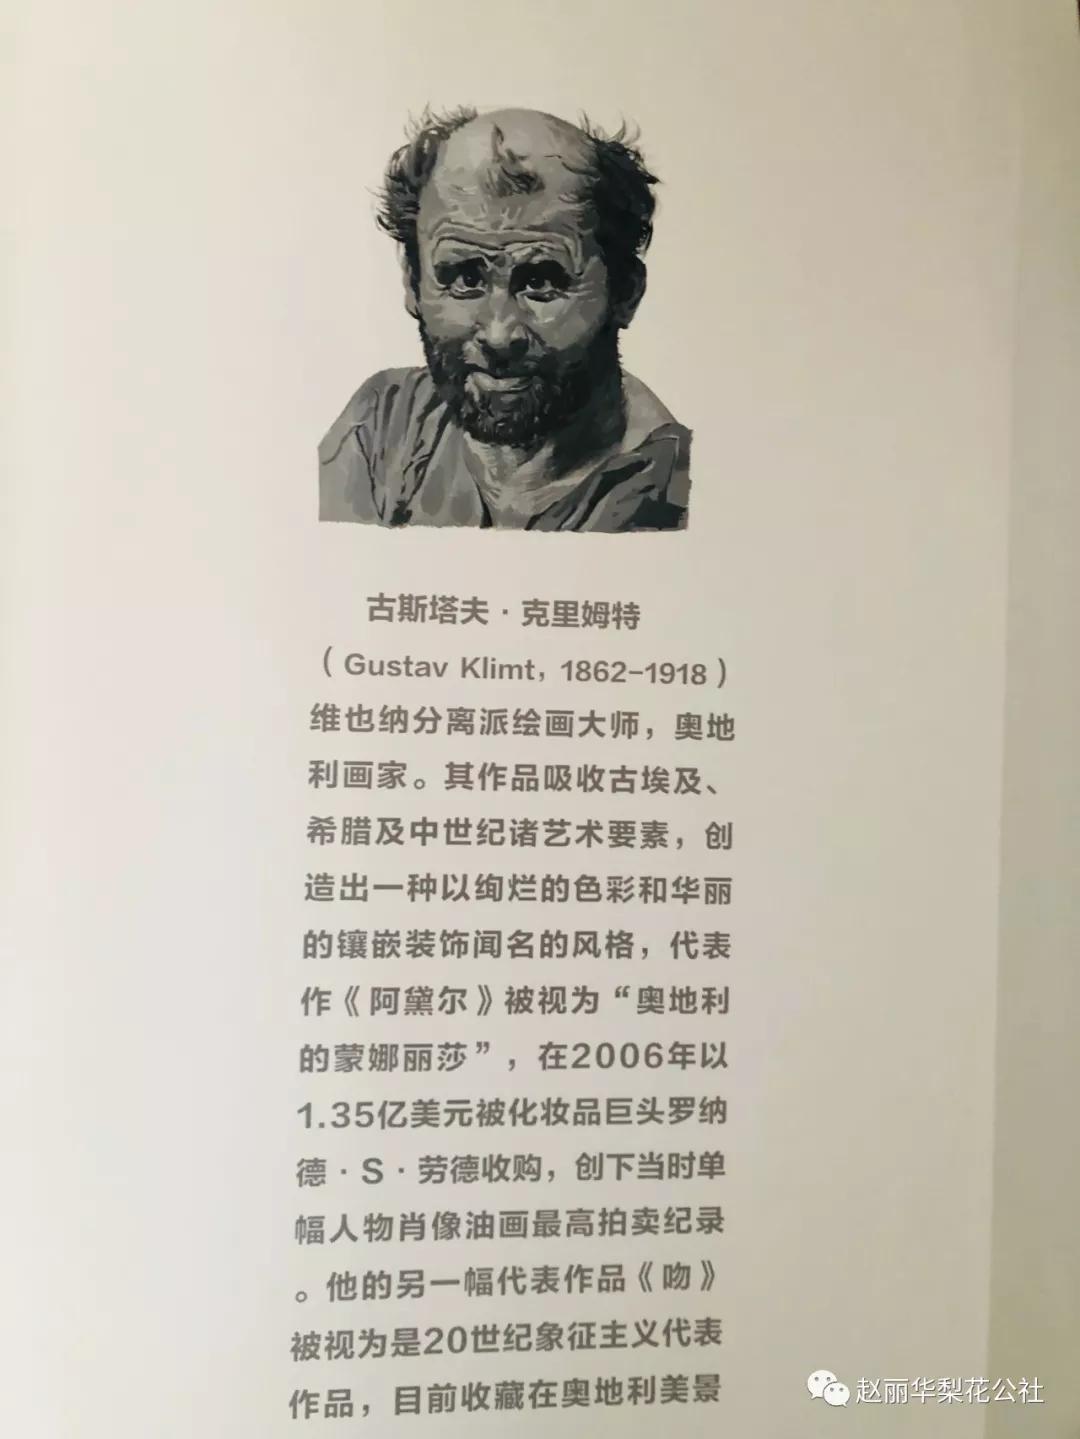 古斯塔夫·克里姆特
（Gustav Klimt, 1862-1918）
维也纳分离派绘画大师，奥地
利画家。其作品吸收古埃及、
希腊及中世纪诸艺术要素，创
造出一种以绚烂的色彩和华丽
的镶嵌装饰闻名的风格，代表
作《阿黛尔》被视为“奥地利
的蒙娜丽莎”，在2006年以
1.35亿美元被化妆品巨头罗纳
德·S·劳德收购，创下当时单
幅人物肖像油画最高拍卖纪录
。他的另一幅代表作品《吻》
被视为是20世纪象征主义代表
作品，目前收藏在奥地利美景
赵丽华梨花公社